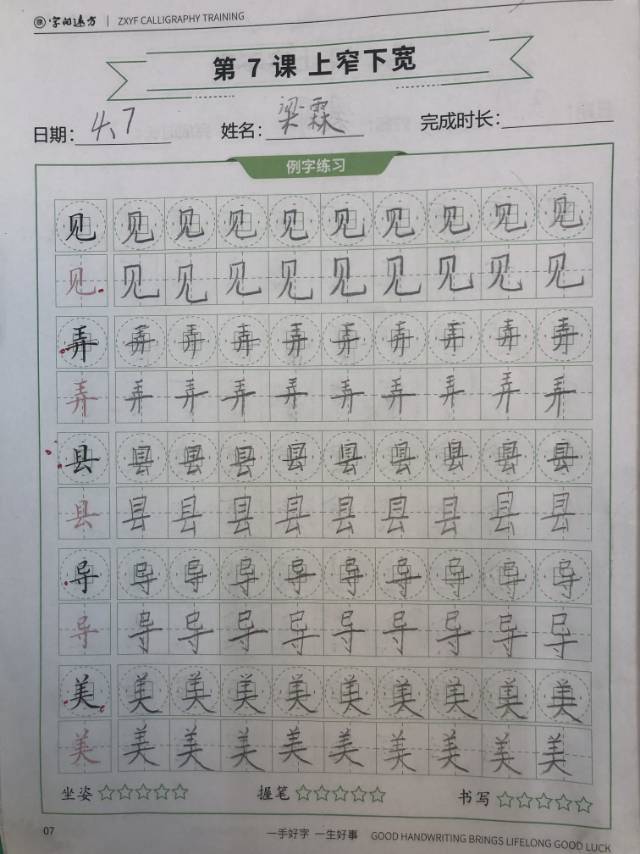 字阳远方 | ZXYF CALLIGRAPHY TRAINING
第 7 课 上窄下宽
日期： 4.7 姓名： 梁霖 完成时长：
例字练习
见 见 见 见 见 见 见 见 见 见
见 见 见 见 见 见 见 见 见 见
弄 弄 弄 弄 弄 弄 弄 弄 弄 弄
弄 弄 弄 弄 弄 弄 弄 弄 弄 弄
县 县 县 县 县 县 县 县 县 县
县 县 县 县 县 县 县 县 县 县
导 导 导 导 导 导 导 导 导 导
导 导 导 导 导 导 导 导 导 导
美 美 美 美 美 美 美 美 美 美
美 美 美 美 美 美 美 美 美 美
坐姿 握笔 书写
07 一手好字 一生好事 GOOD HANDWRITING BRINGS LIFELONG GOOD LUCK